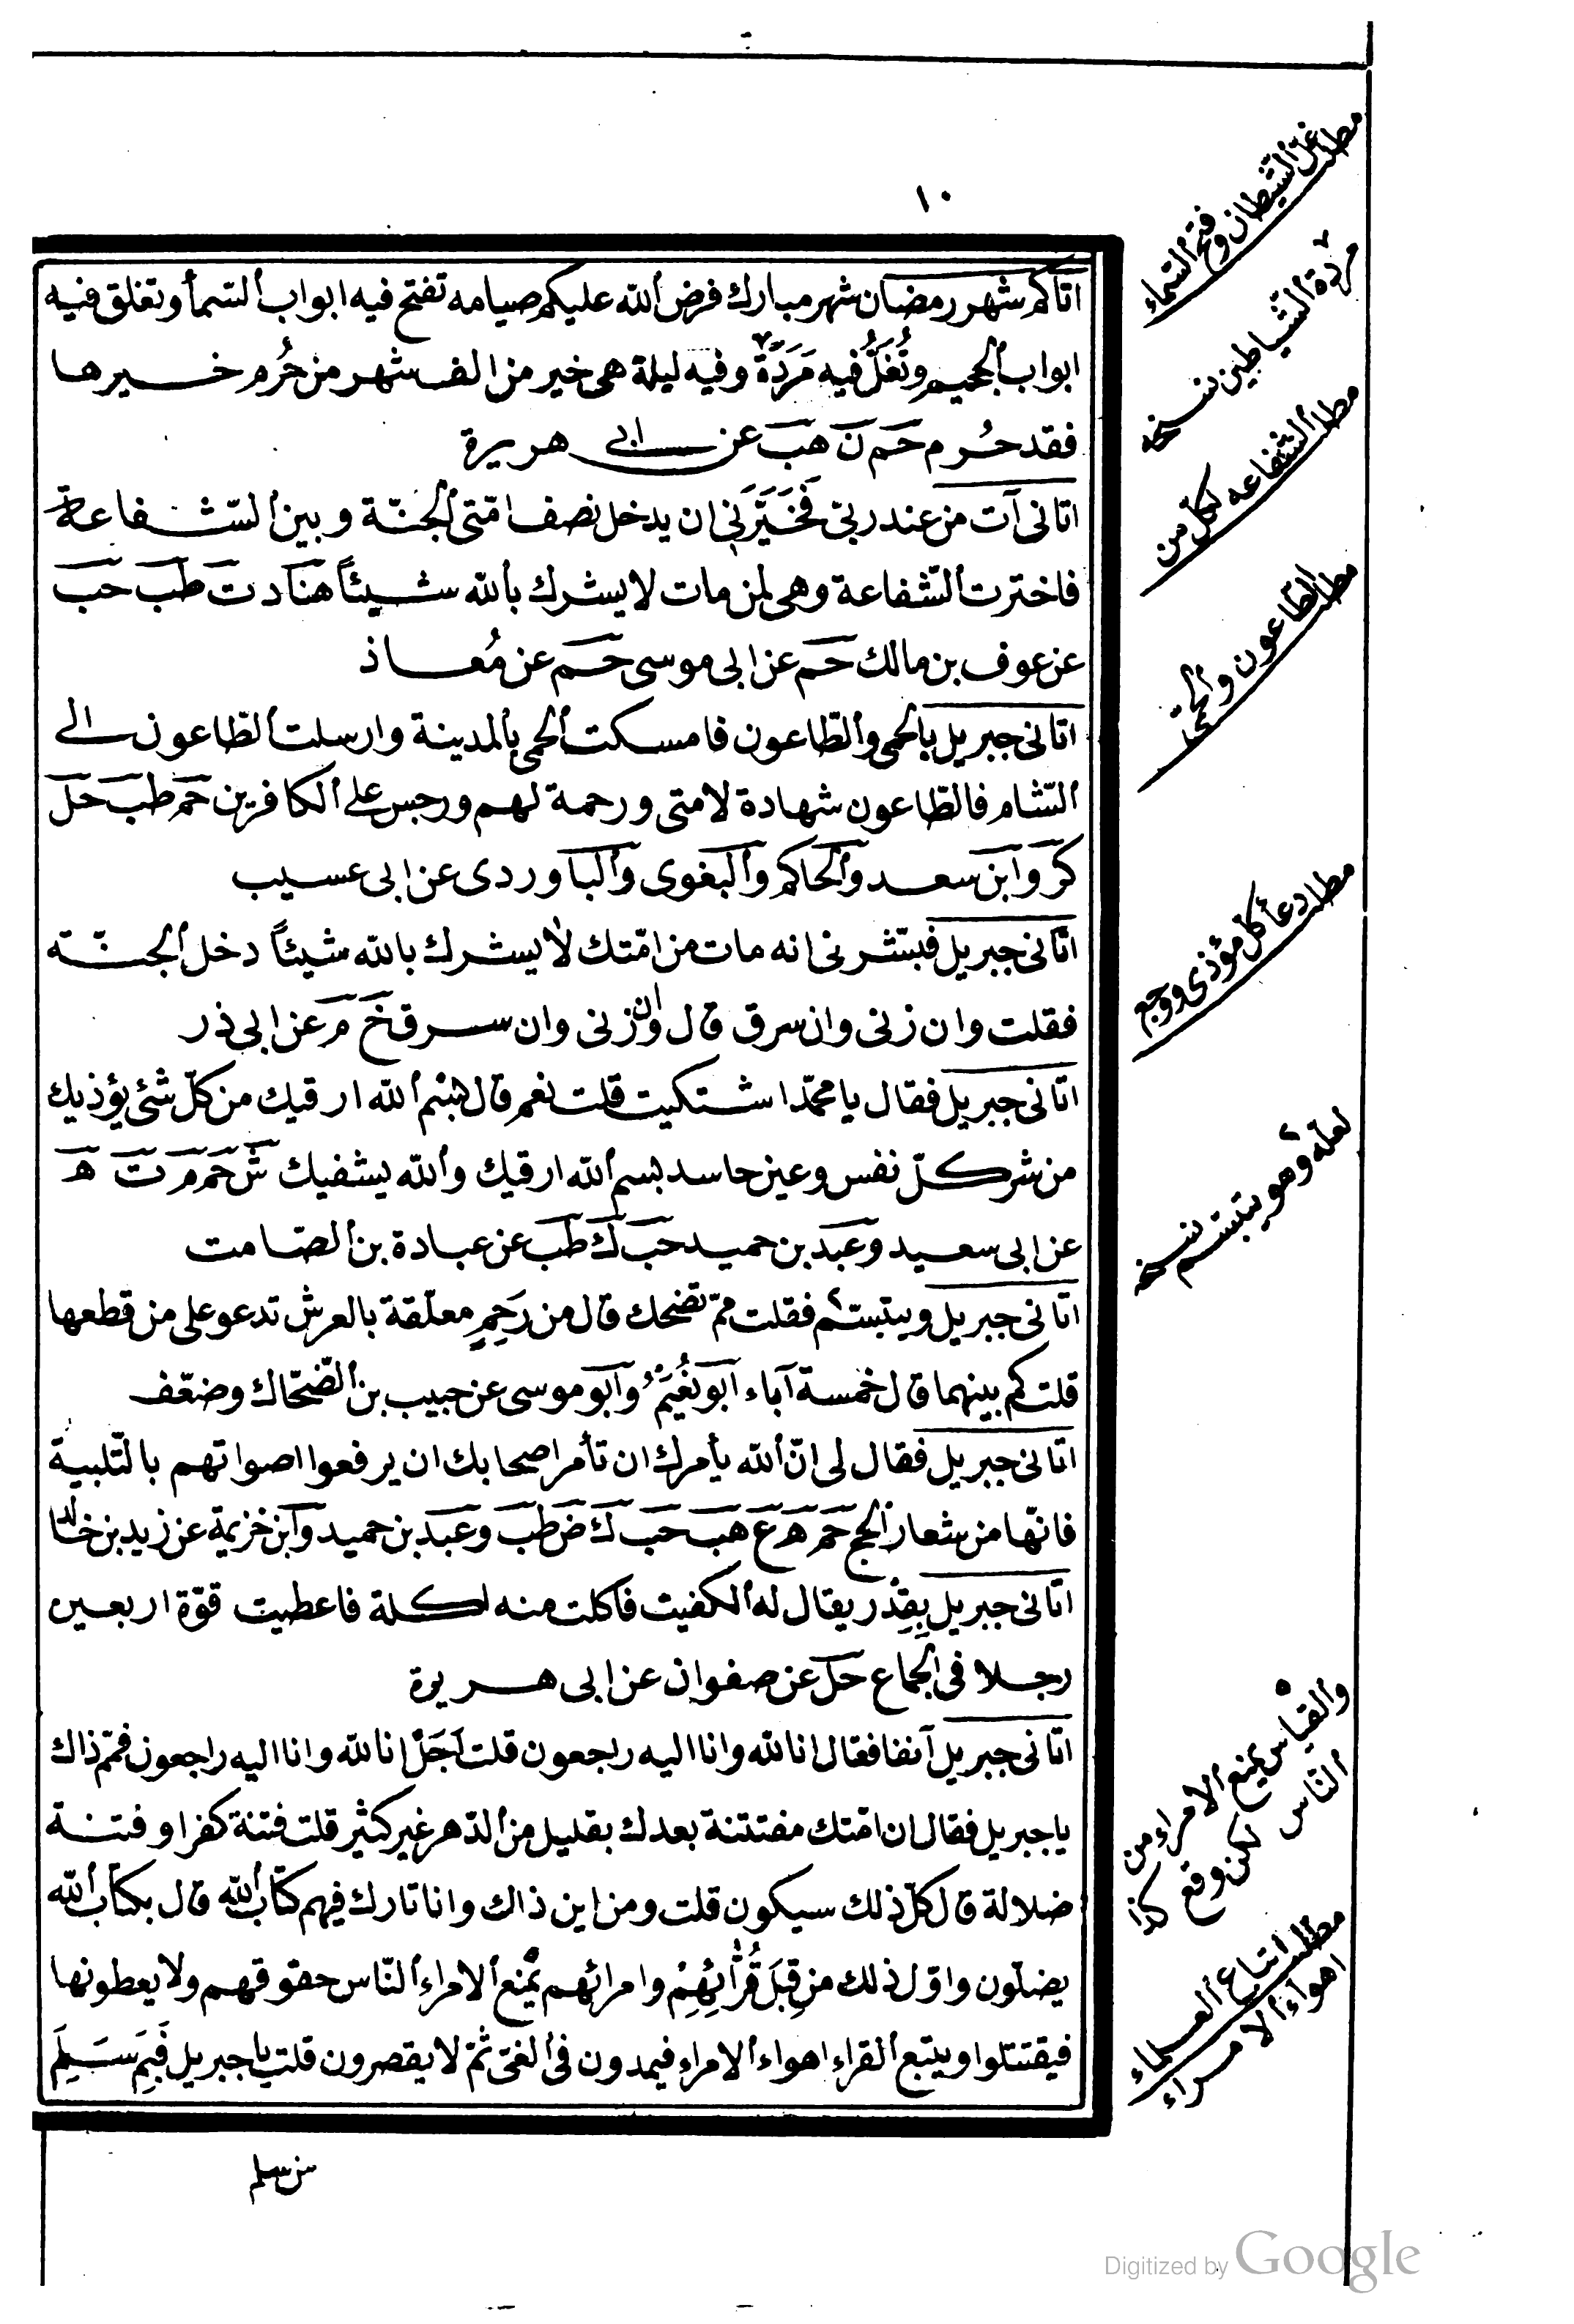 ١٠
اتاكم شهر رمضان شهر مبارك فرض الله عليكم صيامه تفتح فيه ابواب السمأ وتغلق فيه
ابواب الجحيم وتُغَلُّ فيه مَرَدَةٌ وفيه ليلة هى خير من الف شهر من حُرم خيرها
فقد حُرم حم ن هب عن ابى هريرة
اتانى آت من عند ربى فَخَيَّرَنِى ان يدخل نصف امّتى الجنّة وبين الشّفاعة
فاخترت الشّفاعة وهى لمن مات لا يشرك بالله شيئاً هناد ت طب حب
عن عوف بن مالك حم عن ابى موسى حم عن مُعاذ
اتانى جبريل بالحمى والطّاعون فامسكت الحمى بالمدينة وارسلت الطّاعون الى
الشّام فالطّاعون شهادة لامتى ورحمة لهم ورجس على الكافرين حم طب حل
كر وابن سعد والحاكم والبغوى والباوردى عن ابى عسيب
اتانى جبريل فبشّرنى انه مات من امّتك لا يشرك بالله شيئاً دخل الجنّة
فقلت وان زنى وان سرق قال وان زنى وان سرق خ م عن ابى ذر
اتانى جبريل فقال يا محمّد اشتكيت قلت نعم قال بسم الله ارقيك من كلّ شئ يؤذيك
من شر كلّ نفس وعين حاسد بسم الله ارقيك والله يشفيك ش حم م ت ه
عن ابى سعيد وعبد بن حميد حب ك طب عن عبادة بن الصّامت
اتانى جبريل ويتبسّم فقلت ممّ تضحك قال من رَحِمٍ معلّقة بالعرش تدعو على من قطعها
قلت كم بينهما قال خمسة آباء ابو نُعَيْم وابو موسى عن حبيب بن الضّحّاك وضعّف
اتانى جبريل فقال لى انّ الله يأمرك ان تأمر اصحابك ان يرفعوا اصواتهم بالتّلبية
فانّها من شعار الحج حم ه ع هب حب ك ض طب وعبد بن حميد وابن خزيمة عن زيد بن خالد
اتانى جبريل بِقِدْرٍ يقال له الكفيت فاكلت منه اكلة فاعطيت قوّة اربعين
رجلا فى الجماع حل عن صفوان عن ابى هريرة
اتانى جبريل آنفا فقال انا لله وانا اليه راجعون قلت اَجَلْ انا لله وانا اليه راجعون فممّ ذاك
يا جبريل فقال ان امّتك مفتتنة بعدك بقليل من الدّهر غير كثير قلت فتنة كفر او فتنة
ضلالة قال كلّ ذلك سيكون قلت ومن اين ذاك وانا تارك فيهم كتاب الله قال بكتاب الله
يضلّون واوّل ذلك من قِبَل قُرّائِهِمْ وامرائهم يمنع الامراء النّاس حقوقهم ولا يعطونها
فيقتتلوا ويتبع القراء اهواء الامراء فيمدون فى الغىّ ثمّ لا يقصرون قلت يا جبريل فَبِمَ سَلِمَ
من سلم
مطلب غلّ الشّيطان وفتح السّماء
مردة الشّياطين نسخه
مطلب الشفاعه لكلّ من
مطلب الطّاعون والحمى
مطلب دعأ كلّ مؤذى ووجع
لعله وهو يتبسّم نسخه
والقياس يمنع الامراء من
النّاس لكن وقع كذا
مطلب اتباع العلماء
اهواء الامراء
Digitized by Google